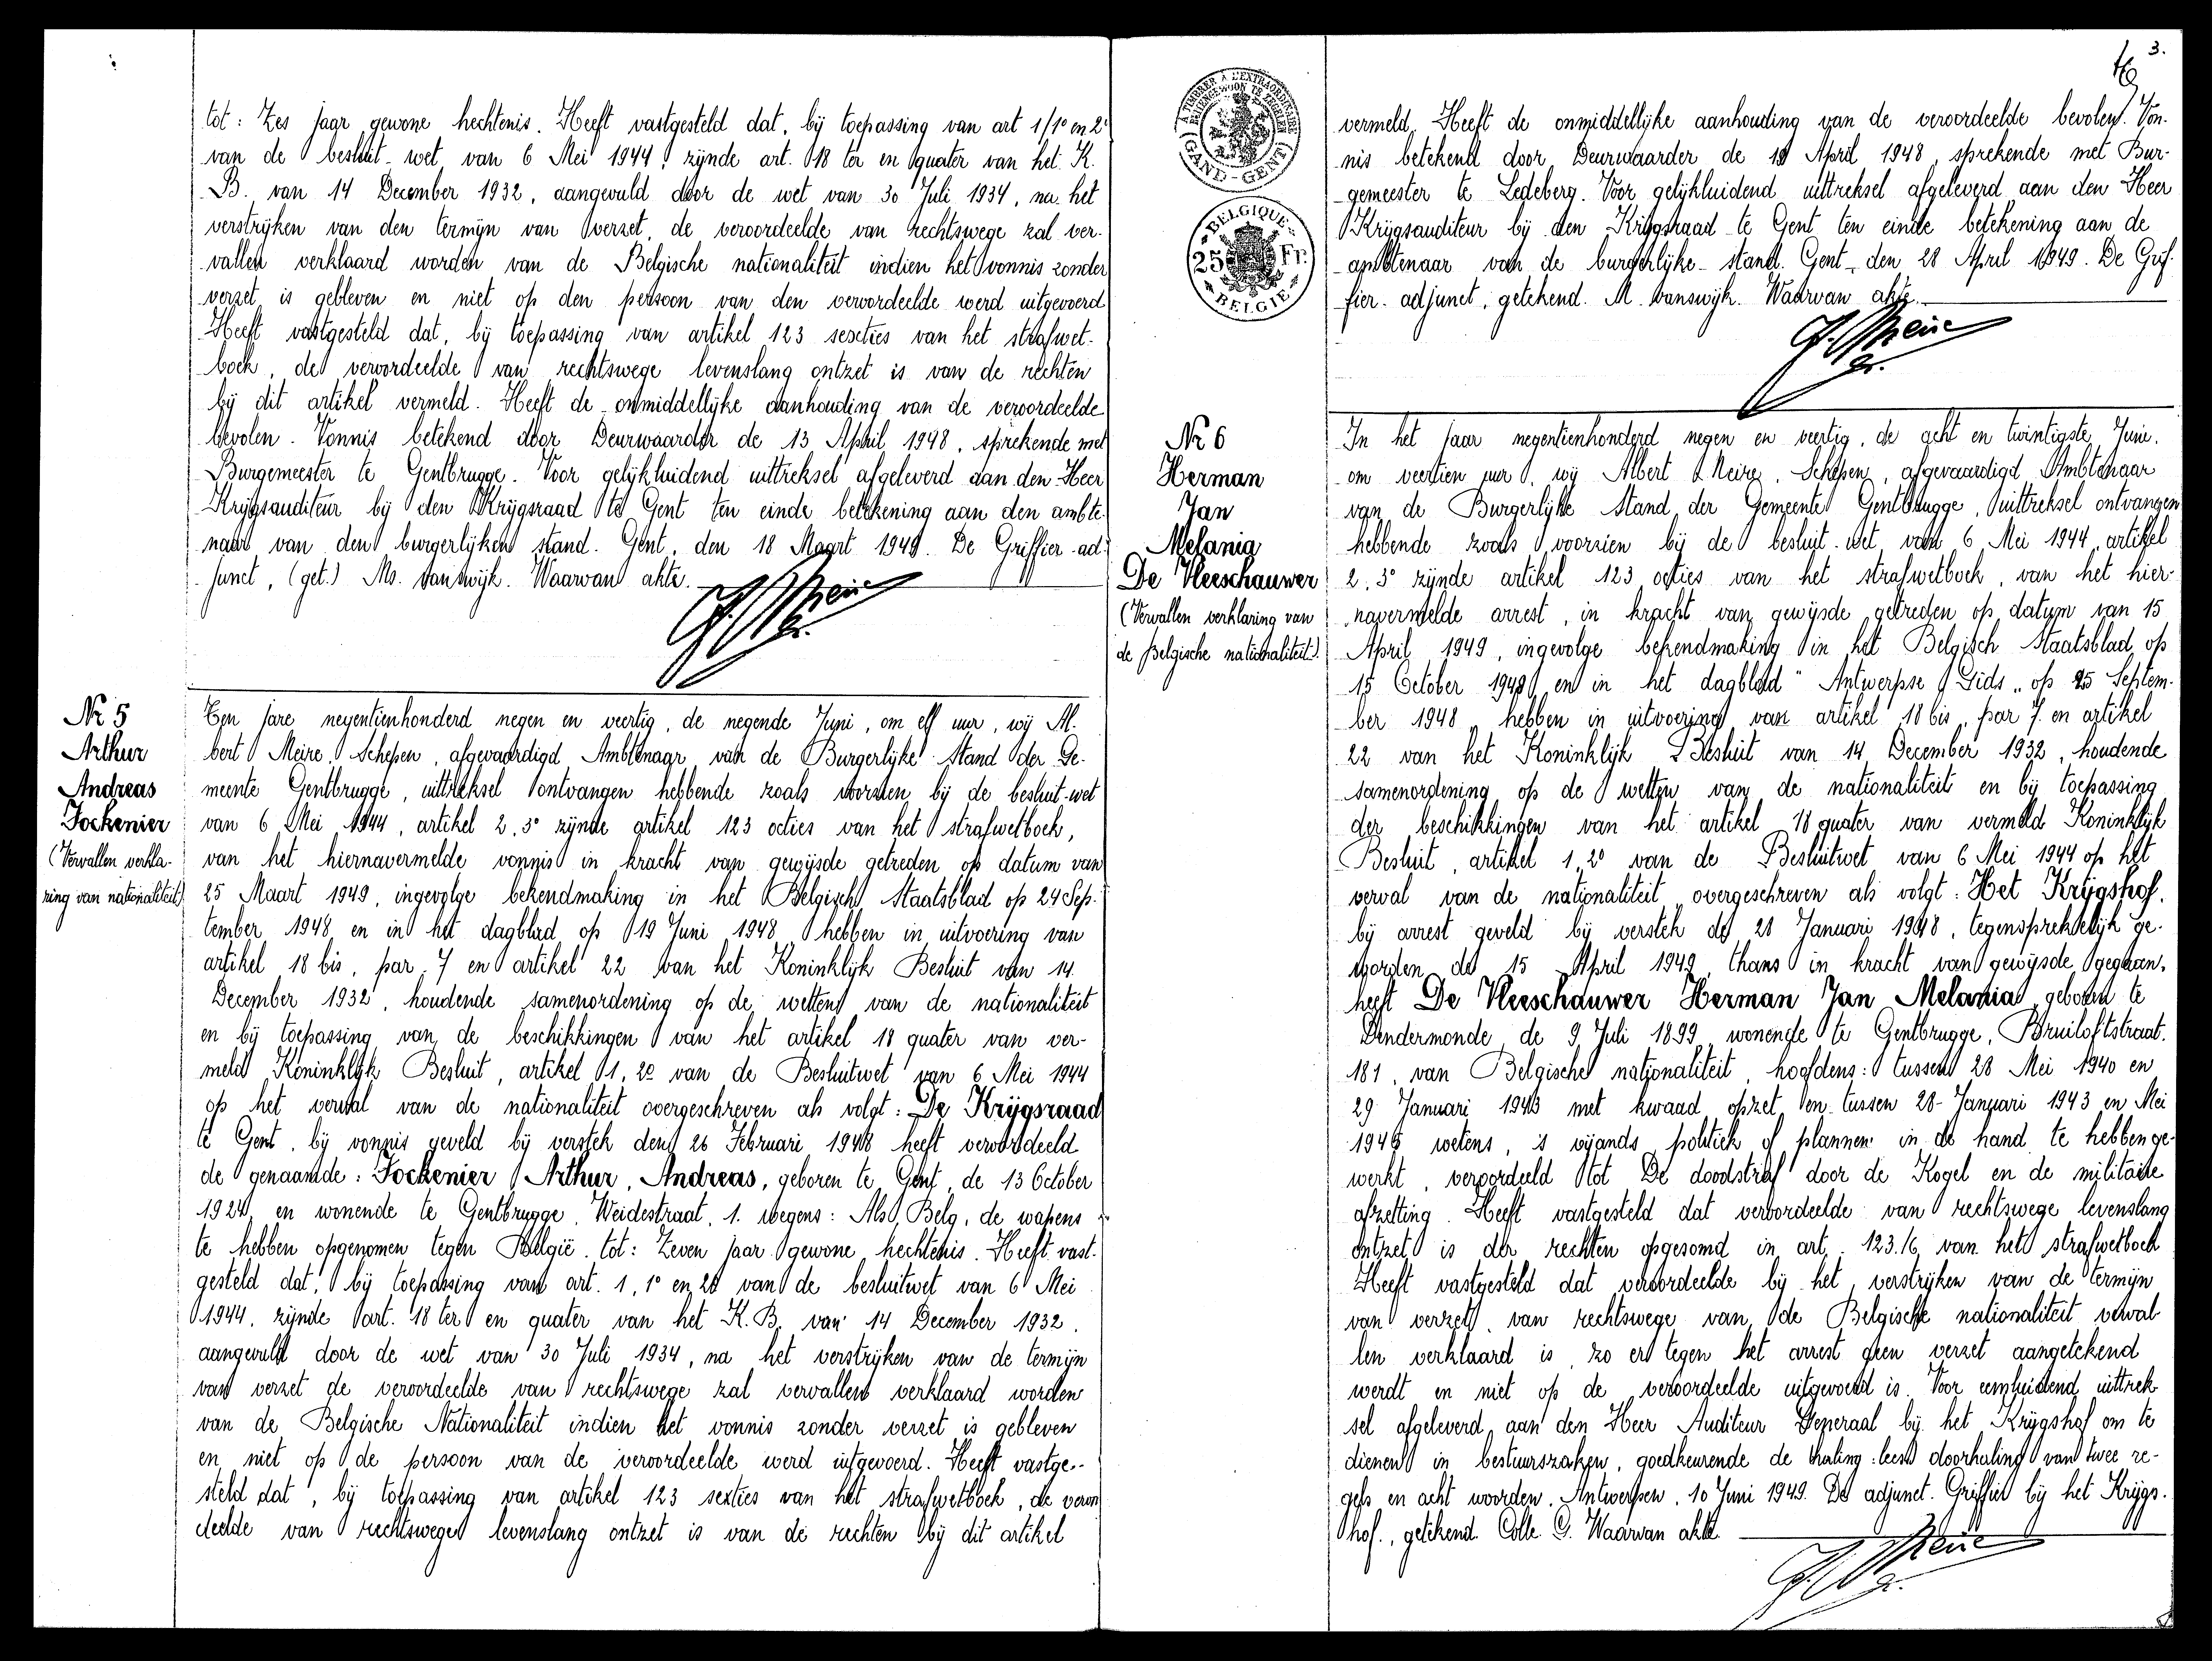 tot: Zes jaar gewone hechtenis. Heeft vastgesteld dat, bij toepassing van art 1/1° en 2°
van de besluit-wet van 6 Mei 1944, zijnde art. 18 ter en quater van het K.
B. van 14 December 1932, aangevuld door de wet van 30 Juli 1934, na het
verstrijken van den termijn van verzet, de veroordeelde van rechtswege zal ver-
vallen verklaard worden van de Belgische nationaliteit indien het vonnis zonder
verzet is gebleven en niet op den persoon van den veroordeelde werd uitgevoerd
Heeft vastgesteld dat, bij toepassing van artikel 123 sexties van het strafwet-
boek, de veroordeelde van rechtswege levenslang ontzet is van de rechten
bij dit artikel vermeld. Heeft de onmiddellijke aanhouding van de veroordeelde
bevolen. Vonnis betekend door Deurwaarder de 13 April 1948, sprekende met
Burgemeester te Gentbrugge. Voor gelijkluidend uittreksel afgeleverd aan den Heer
Krijgsauditeur bij den Krijgsraad te Gent ten einde betekening aan den ambte-
naar van den burgerlijken stand. Gent, den 18 Maart 1949. De Griffier-ad-
junct, (get.) Ms. vanswijk. Waarvan akte.
Nr 5
Arthur
Andreas
Fockenier
(Vervallen verkla-
ring van nationaliteit)
Ten jare negentienhonderd negen en veertig, de negende Juni, om elf uur, wij Al-
bert Meire, Schepen, afgevaardigd Ambtenaar van de Burgerlijke Stand der Ge-
meente Gentbrugge, uittreksel ontvangen hebbende zoals voorzien bij de besluit-wet
van 6 Mei 1944, artikel 2, 3° zijnde artikel 123 octies van het strafwetboek,
van het hiernavermelde vonnis in kracht van gewijsde getreden op datum van
25 Maart 1949, ingevolge bekendmaking in het Belgisch Staatsblad op 24 Sep-
tember 1948, en in het dagblad op 19 Juni 1948, hebben in uitvoering van
artikel 18 bis, par. 7 en artikel 22 van het Koninklijk Besluit van 14
December 1932, houdende samenordening op de wetten van de nationaliteit
en bij toepassing van de beschikkingen van het artikel 18 quater van ver-
meld Koninklijk Besluit, artikel 1, 2° van de Besluitwet van 6 Mei 1944
op het verval van de nationaliteit overgeschreven als volgt: De Krijgsraad
te Gent, bij vonnis geveld bij verstek den 26 Februari 1948 heeft veroordeeld
de genaamde: Fockenier Arthur, Andreas, geboren te Gent, de 13 October
1924, en wonende te Gentbrugge, Weidestraat, 1. wegens: Als Belg, de wapens
te hebben opgenomen tegen België. tot: Zeven jaar gewone hechtenis. Heeft vast-
gesteld dat, bij toepassing van art. 1, 1° en 2° van de besluitwet van 6 Mei
1944, zijnde art. 18 ter en quater van het K.B. van 14 December 1932,
aangevuld door de wet van 30 Juli 1934, na het verstrijken van de termijn
van verzet de veroordeelde van rechtswege zal vervallen verklaard worden
van de Belgische Nationaliteit indien het vonnis zonder verzet is gebleven
en niet op de persoon van de veroordeelde werd uitgevoerd. Heeft vastge-
steld dat, bij toepassing van artikel 123 sexties van het strafwetboek, de veroor
deelde van rechtswege levenslang ontzet is van de rechten bij dit artikel
3.
A TIMBRER A L'EXTRAORDINAIRE
BUITENGEWOON TE ZEGELEN
(GAND-GENT)
BELGIQUE
25 Fr.
BELGIE
vermeld. Heeft de onmiddellijke aanhouding van de veroordeelde bevolen. Von-
nis betekend door Deurwaarder de April 1948, sprekende met Bur-
gemeester te Ledeberg. Voor gelijkluidend uittreksel afgeleverd aan den Heer
Krijgsauditeur bij den Krijgsraad te Gent ten einde betekening aan de
ambtenaar van de burgerlijke stand. Gent, den 28 April 1949. De Grif-
fier-adjunct, getekend. M. vanswijk. Waarvan akte.
Nr 6
Herman
Jan
Melania
De Vleeschauwer
(Vervallen verklaring van
de Belgische nationaliteit)
In het jaar negentienhonderd negen en veertig, de acht en twintigste Juni,
om veertien uur, wij Albert Meire, Schepen, afgevaardigd Ambtenaar
van de Burgerlijke Stand der Gemeente Gentbrugge, uittreksel ontvangen
hebbende zoals voorzien bij de besluit-wet van 6 Mei 1944, artikel
2, 3° zijnde artikel 123 octies van het strafwetboek, van het hier-
navermelde arrest, in kracht van gewijsde getreden op datum van 15
April 1949, ingevolge bekendmaking in het Belgisch Staatsblad op
15 October 1948 en in het dagblad "Antwerpse Gids" op 25 Septem-
ber 1948, hebben in uitvoering van artikel 18 bis, par 7. en artikel
22 van het Koninklijk Besluit van 14 December 1932, houdende
samenordening op de wetten van de nationaliteit en bij toepassing
der beschikkingen van het artikel 18 quater van vermeld Koninklijk
Besluit, artikel 1, 2° van de Besluitwet van 6 Mei 1944 op het
verval van de nationaliteit overgeschreven als volgt: Het Krijgshof,
bij arrest geveld bij verstek de 28 Januari 1948, tegensprekelijk ge-
worden de 15 April 1949, thans in kracht van gewijsde gegaan,
heeft De Vleeschauwer Herman Jan Melania, geboren te
Dendermonde, de 9 Juli 1899, wonende te Gentbrugge, Bruiloftstraat.
181, van Belgische nationaliteit, hoofdens: tussen 28 Mei 1940 en
29 Januari 1943 met kwaad opzet en tussen 28 Januari 1943 en Mei
1945 wetens, 's vijands politiek of plannen in de hand te hebben ge-
werkt, veroordeeld tot De doodstraf door de Kogel en de militaire
afzetting. Heeft vastgesteld dat veroordeelde van rechtswege levenslang
ontzet is der rechten opgesomd in art. 123/6 van het strafwetboek
Heeft vastgesteld dat veroordeelde bij het verstrijken van de termijn
van verzet, van rechtswege van de Belgische nationaliteit verval
len verklaard is, zo er tegen het arrest geen verzet aangetekend
werdt en niet op de veroordeelde uitgevoerd is. Voor eensluidend uittrek-
sel afgeleverd aan den Heer Auditeur Generaal bij het Krijgshof om te
dienen in bestuurszaken, goedkeurende de haling: lees doorhaling van twee re-
gels en acht woorden. Antwerpen, 10 Juni 1949. De adjunct. Griffier bij het Krijgs-
hof., getekend. Colle. G. Waarvan akte